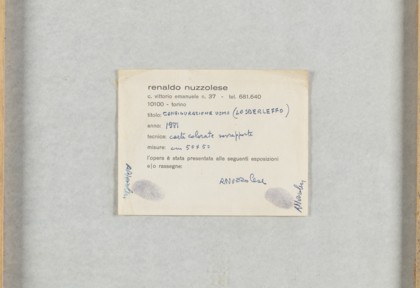 renaldo nuzzolese
c. vittorio emanuele n. 27 - tel. 681.640
10100 - torino
titolo: CONFIGURAZIONE UOMO (LO SBERLEFFO)
anno: 1971
tecnica: carte colorate sovrapposte
misure: cm 50 x 51
l'opera è stata presentata alle seguenti esposizioni
e/o rassegne: